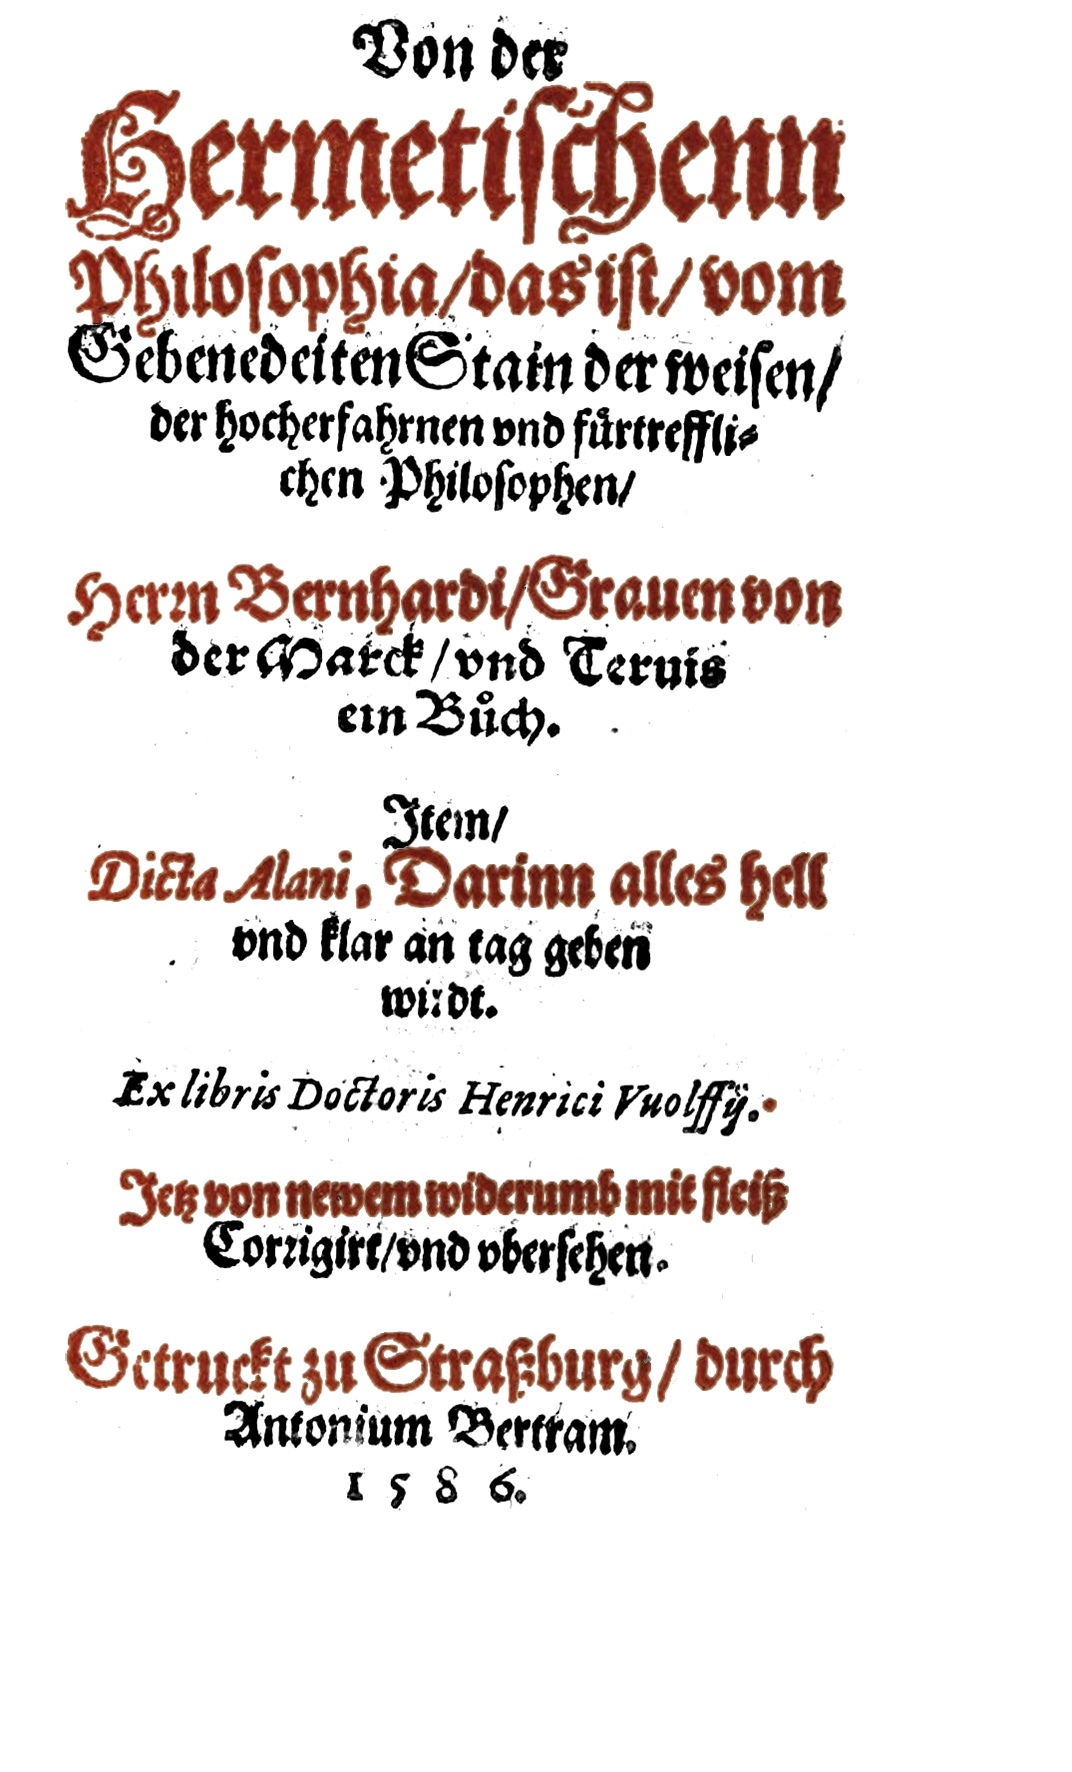 Von der
Hermetiſchenn
Philoſophia/das iſt/ vom
Gebenedeiten Stain der weiſen/
der hocherfahrnen vnd fuͤrtreffli⸗
chen Philoſophen/
Herꝛn Bernhardi/Grauen von
der Marck/vnd Teruis
ein Bůch.
Item/
Dicta Alani, Darinn alles hell
vnd klar an tag geben
wirdt.
Ex libris Doctoris Henrici Vuolffij.
Jetz von newem widerumb mit fleiß
Corꝛigirt/vnd vberſehen.
Getruckt zu Straßburg/ durch
Antonium Bertram.
1 5 8 6.